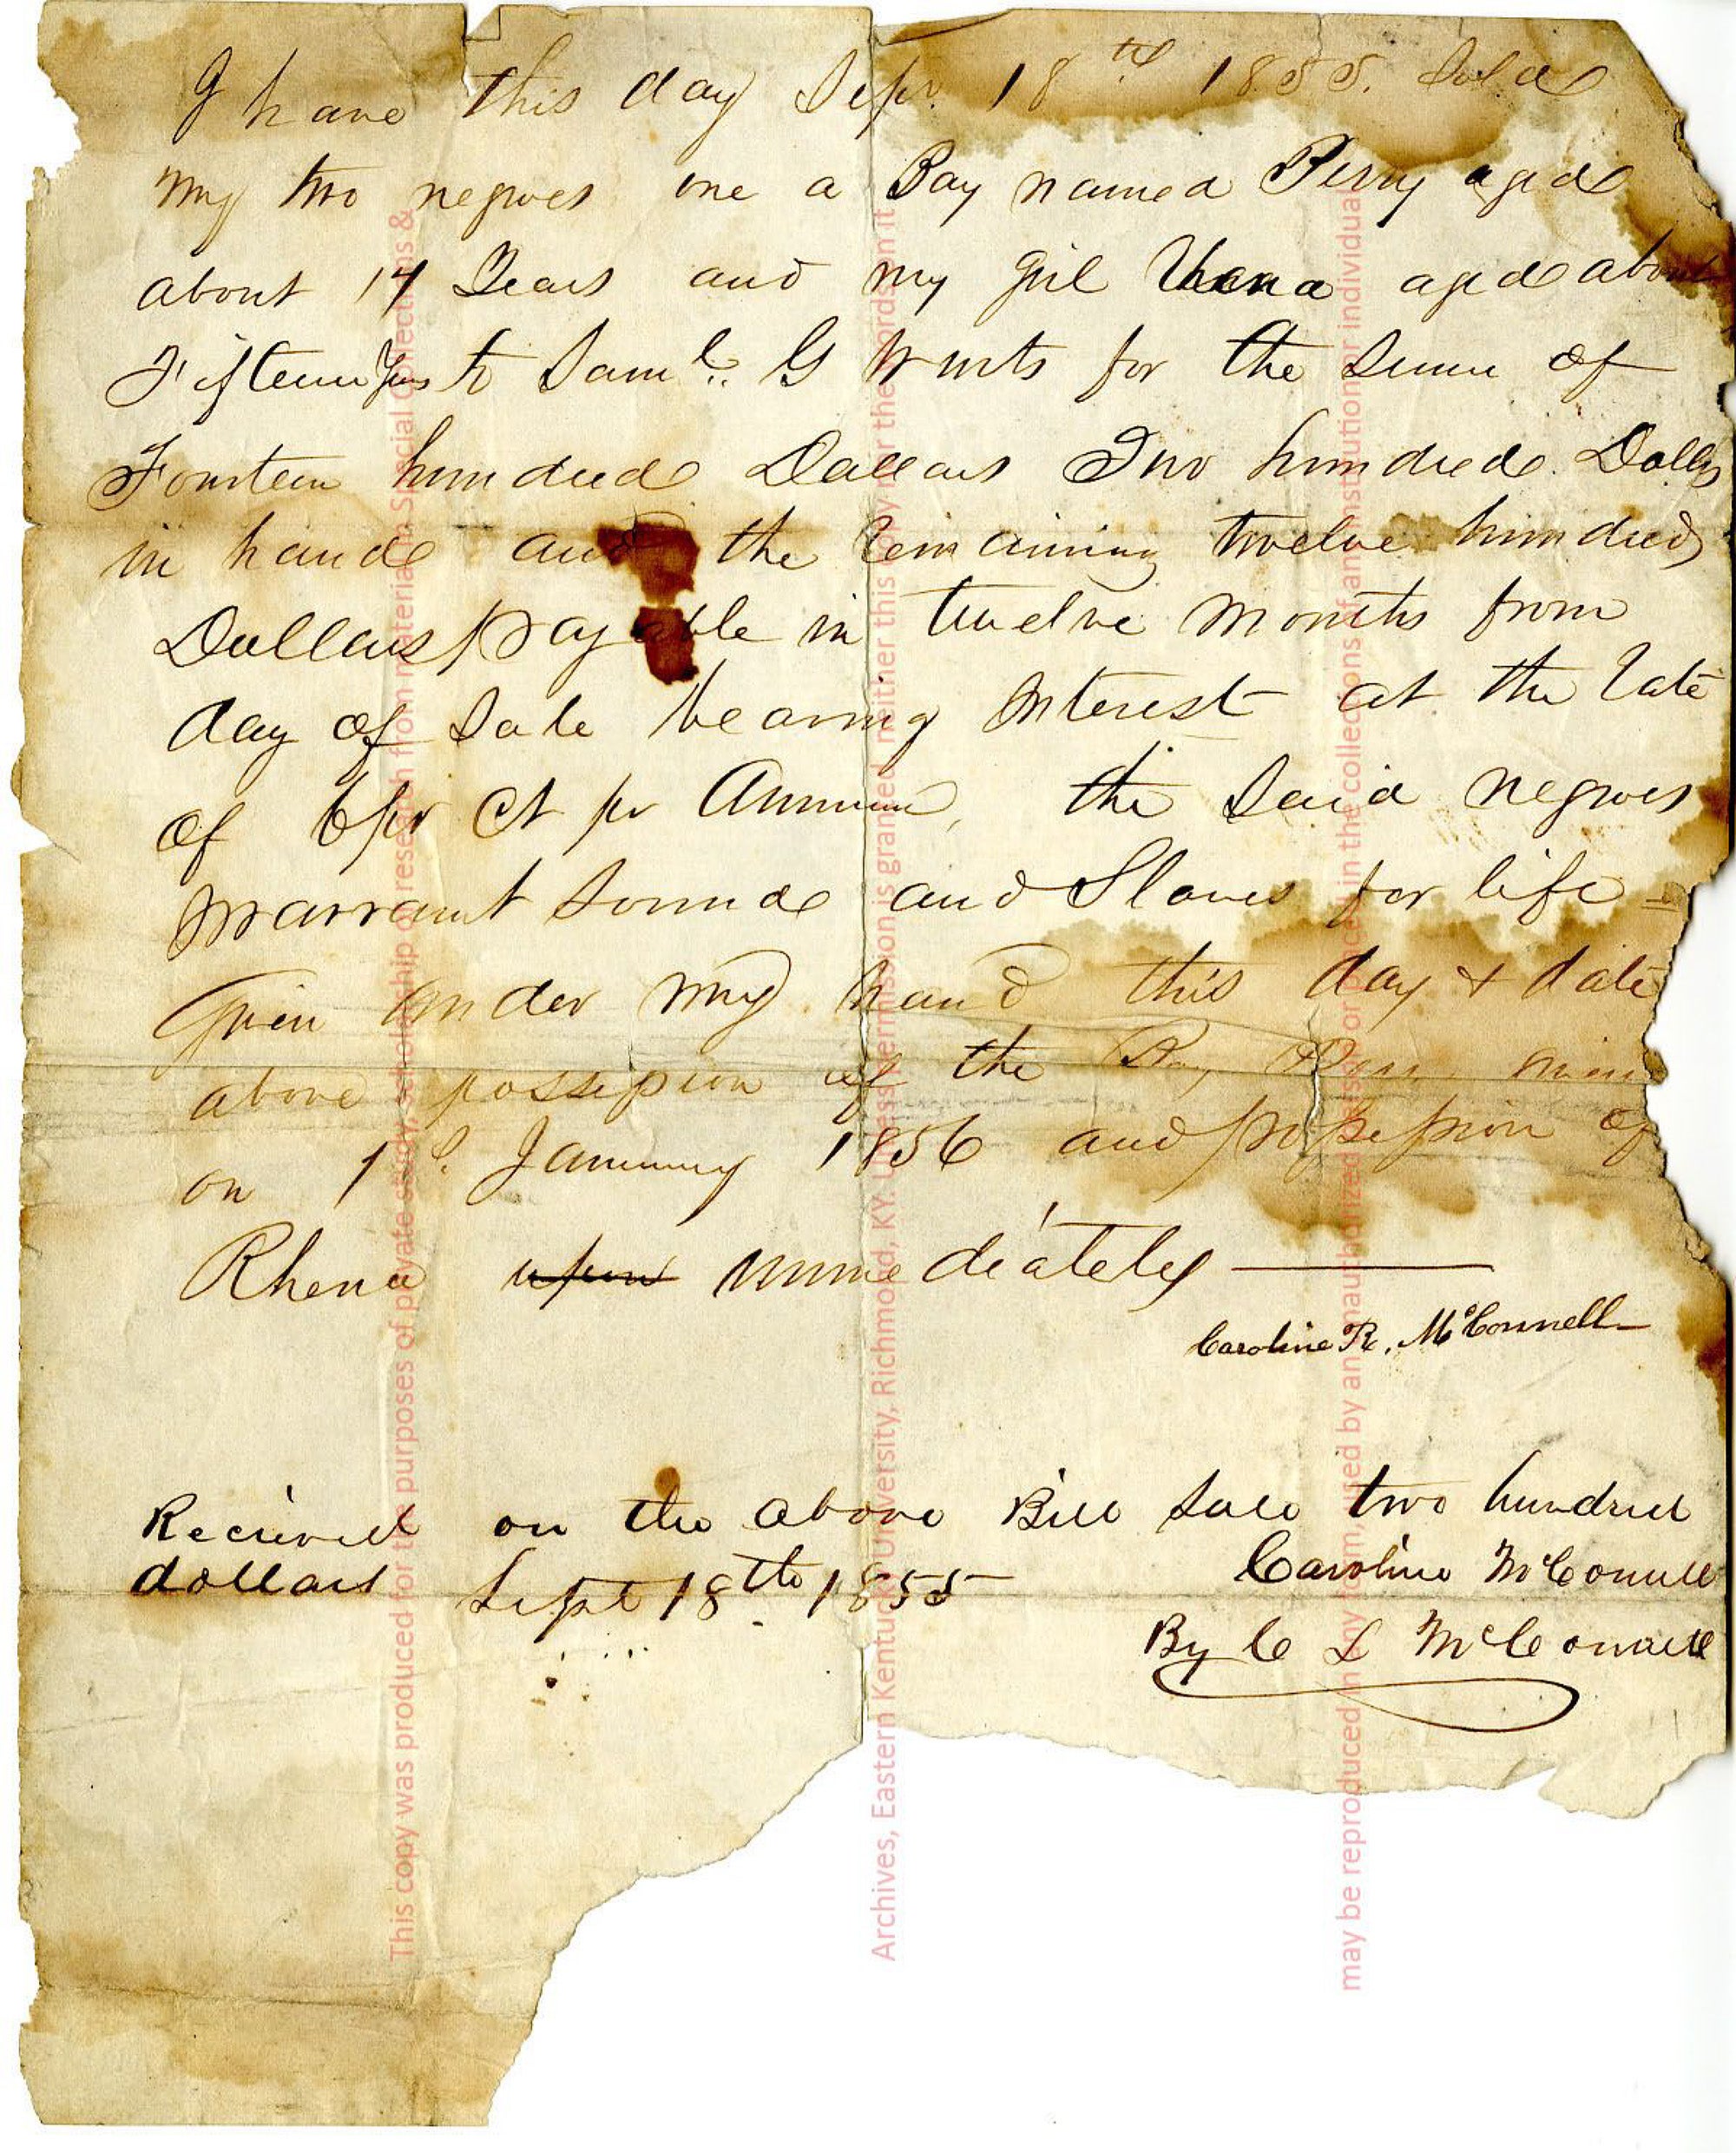 I have this day Sepr. 18th 1855. Sold
my two negroes one a Boy named Perry aged
about 17 Years and my girl Rhena aged about
Fifteen Yrs to Saml. G Wurts for the Sum of
Fourteen hundred Dollars Two hundred Dolls
in hand and the remaining twelve hundred
Dollars payable in twelve Months from
day of Sale bearing Interest at the rate
of 6 pr Ct pr Annum, the Said negroes
Warrant Sound and Slaves for life
Given under my hand this day & date
above possession of the Boy
on 1st January 1856 and possession of
Rhena upon immediately
Caroline R. McConnell
Recieved on the above Bill Sale two hundred
dollars Sept 18th 1855
Caroline McConnell
By C L McConnell
This copy was produced for the purposes of private study, scholarship or research from material in Special Collections &
Archives, Eastern Kentucky University, Richmond, KY. Unless permission is granted, neither this copy nor the words on it
may be reproduced in any form, used by an unauthorized person or placed in the collections of an institution or individual